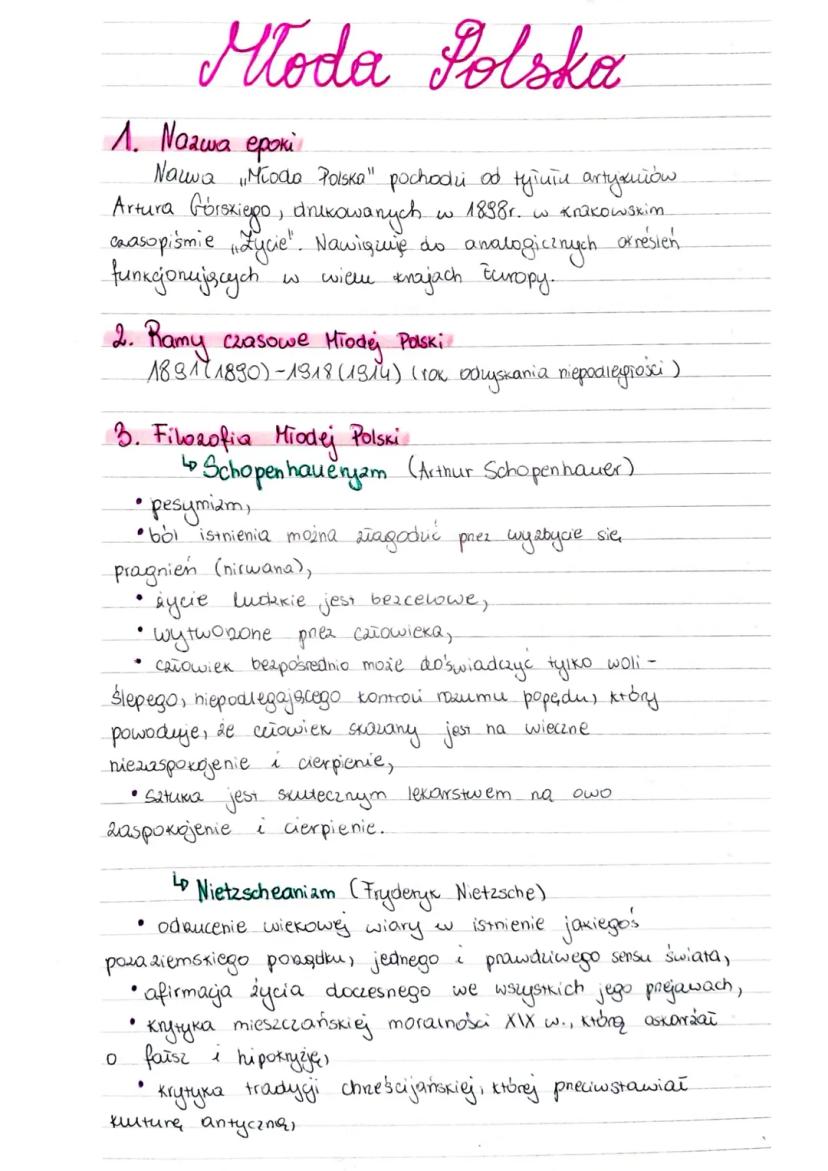 Młoda Polska
1. Nazwa epoki
Nazwa „Młoda Polska" pochodzi od tytułu artykułów
Artura Górskiego, drukowanych w 1898r. w krakowskim
czasopiśmie „Życie". Nawiązuje do analogicznych określeń
funkcjonujących w wielu krajach Europy.
2. Ramy czasowe Młodej Polski
1891(1890)-1918(1914) (rok odzyskania niepodległości)
3. Filozofia Młodej Polski
↳ Schopenhaueryzm (Arthur Schopenhauer)
• pesymizm,
• ból istnienia można złagodzić przez wyzbycie się
pragnień (nirwana),
• życie ludzkie jest bezcelowe,
• wytworzone przez człowieka,
• człowiek bezpośrednio może doświadczyć tylko woli -
ślepego, niepodlegającego kontroli rozumu popędu, który
powoduje, że człowiek skazany jest na wieczne
niezaspokojenie i cierpienie,
• sztuka jest skutecznym lekarstwem na owo
zaspokojenie i cierpienie.
↳ Nietzscheanizm (Fryderyk Nietzsche)
• odrzucenie wiekowej wiary w istnienie jakiegoś
pozaziemskiego porządku, jednego i prawdziwego sensu świata,
• afirmacja życia doczesnego we wszystkich jego przejawach,
• krytyka mieszczańskiej moralności XIX w., którą oskarżał
o fałsz i hipokryzję,
• krytyka tradycji chrześcijańskiej, której przeciwstawiał
kulturę antyczną,